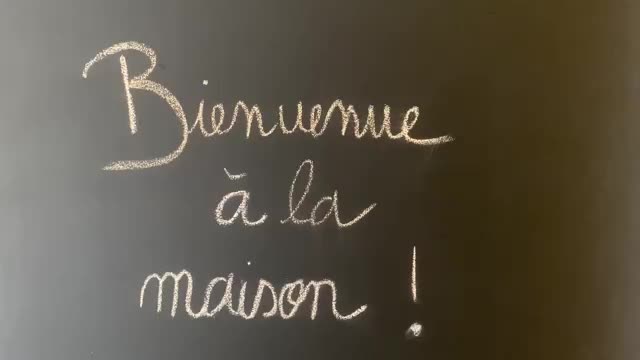 Bienvenue
à la
maison !